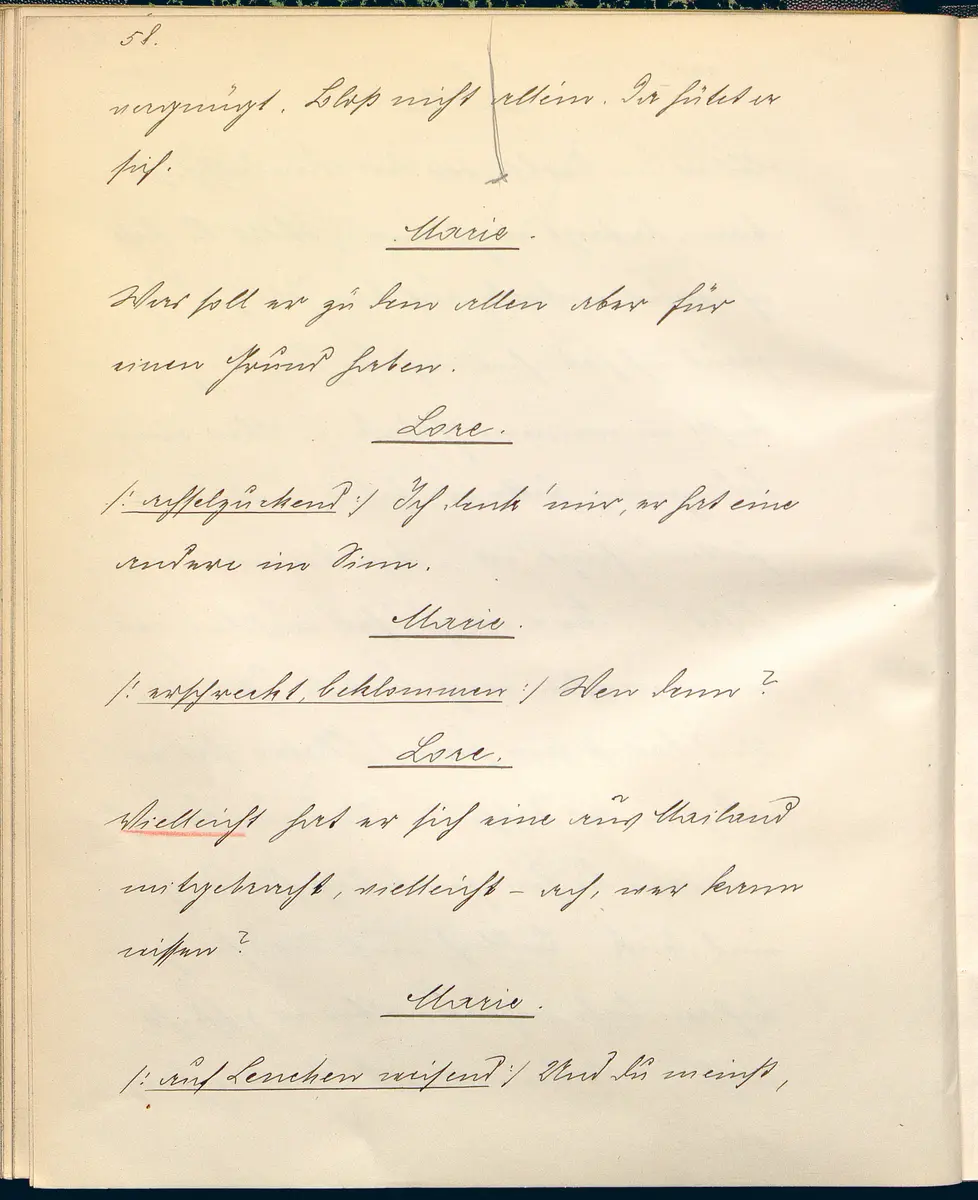 58.
vergnügt. Bloß nicht allein. Da hütet er
sich.
Marie.
Was soll er zu dem allen aber für
einen Grund haben.
Lore.
/: achselzuckend :/ Ich denk' mir, er hat eine
andere im Sinn.
Marie.
/: erschreckt, beklommen :/ Wen denn?
Lore.
Vielleicht hat er sich eine aus Mailand
mitgebracht, vielleicht – ach, wer kann
wissen?
Marie.
/: auf Lenchen weisend :/ Und du meinst,